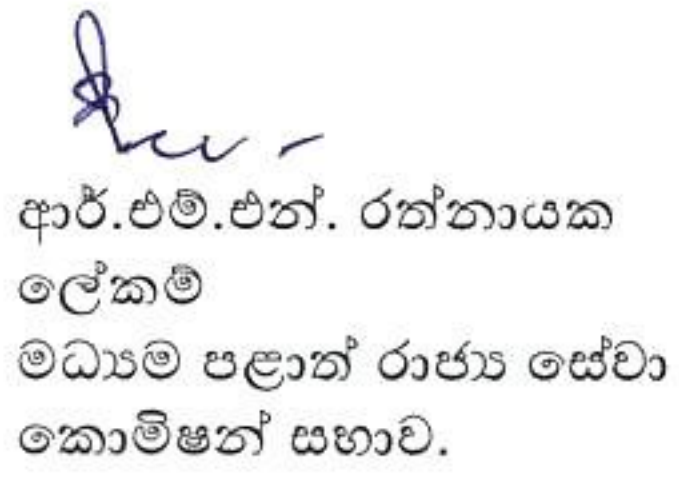 ආර්.එම්.එන්. රත්නායක
ලේකම්
මධ්‍යම පළාත් රාජ්‍ය සේවා
කොමිෂන් සභාව.